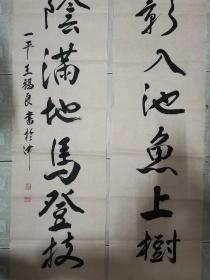 影入池魚上樹
陰滿地馬登枝
一平王福良書於津